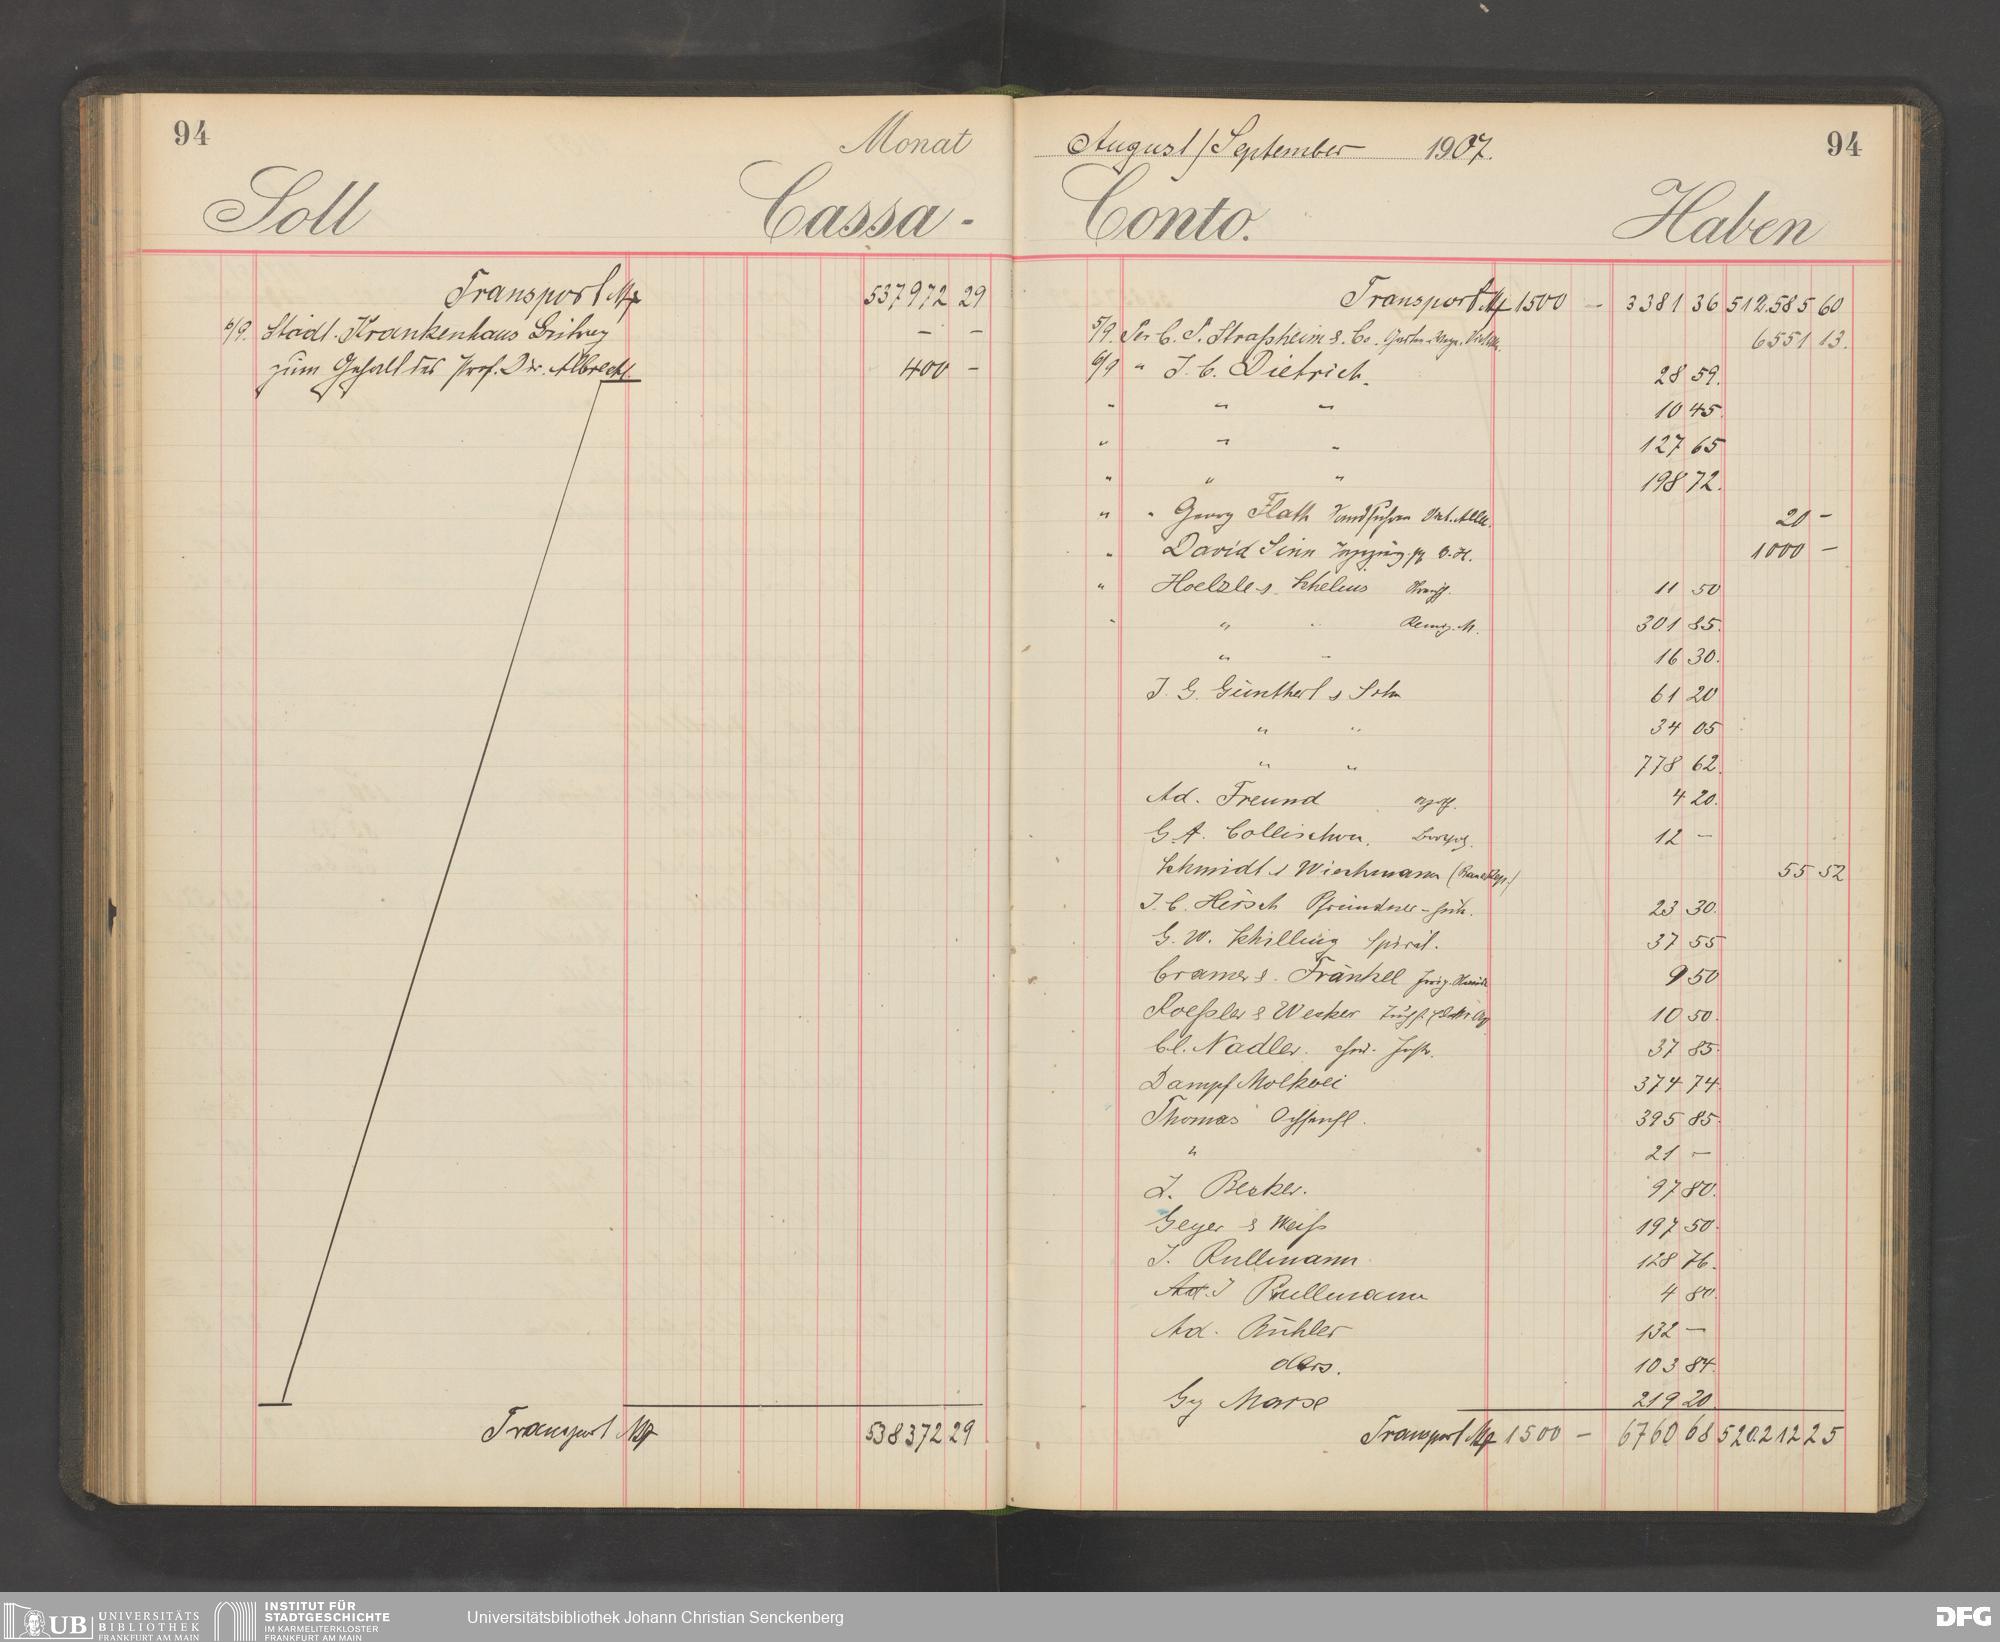 94
Monat
Soll Cassa-
Transport M 537972 29
6/9. Städt. Krankenhaus Beitrag — —
zum Gehalt des Prof. Dir. Albrecht. 400 —
Transport M 538372 29
August/September 1907. 94
Conto. Haben
Transport M 1500 — 3381 36 512.585 60
5/9. Per C. T. Strassheim & Co. 6551 13.
6/9 " J. C. Dietrich. 28 59.
" " " 10 45
" " " 127 65
" " " 198 72.
" " Georg Flath 20 —
" David Sinn 1000 —
" Hoelzle & Chelius 11 50
" " " 301 85.
" " 16 30.
J. G. Günthert & Sohn 61 20
" " 34 05
" " 778 62.
Ad. Freund 4 20.
G. A. Collischon. 12 —
Schmidt & Wiechmann 55 52
J. C. Hirsch Pfründner- 23 30.
G. W. Schilling Spirit. 37 55
Cramer & Fränkel 9 50
Roessler & Wecker 10 50.
Cl. Nadler. 37 85.
Dampf Molkerei 374 74
Thomas Ochsenfl. 395 85.
" 21 —
L. Becker. 97 80.
Geyer & Weiss 197 50.
J. Rullmann 128 76.
Ad. J Rullmann 4 80.
Ad. Bühler 132 —
ders. 103 84.
Gg Marx 219 20.
Transport M 1500 — 6760 68 520.212 25
UB UNIVERSITÄTS
BIBLIOTHEK
FRANKFURT AM MAIN
INSTITUT FÜR
STADTGESCHICHTE
IM KARMELITERKLOSTER
FRANKFURT AM MAIN
Universitätsbibliothek Johann Christian Senckenberg
DFG